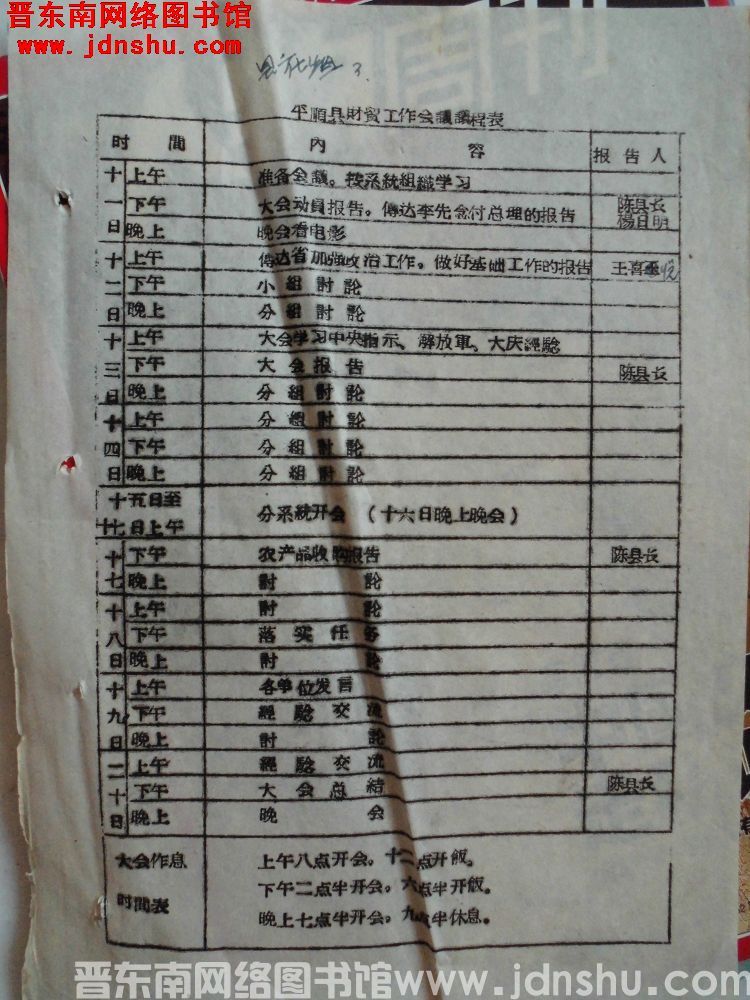 晋东南网络图书馆
www.jdnshu.com
平順县財貿工作会議議程表
时 間 内 容 报告人
十一日 上午 准备会議。按系統組織学习
下午 大会动員报告。傳达李先念付总理的报告 陈县长 楊自明
晚上 晚会看电影
十二日 上午 傳达省加強政治工作。做好基础工作的报告 王喜
下午 小組討論
晚上 分組討論
十三日 上午 大会学习中央指示、解放軍、大庆經驗
下午 大会报告 陈县长
晚上 分組討論
十四日 上午 分組討論
下午 分組討論
晚上 分組討論
十五日至
十七日上午 分系統开会（十六日晚上晚会）
十七 下午 农产品收购报告 陈县长
晚上 討論
十八日 上午 討論
下午 落实任务
晚上 討論
十九日 上午 各单位发言
下午 經驗交流
晚上 討論
二十日 上午 經驗交流
下午 大会总結 陈县长
晚上 晚会
大会作息
时間表
上午八点开会。十二点开飯。
下午二点半开会。六点半开飯。
晚上七点半开会。九点半休息。
晋东南网络图书馆www.jdnshu.com